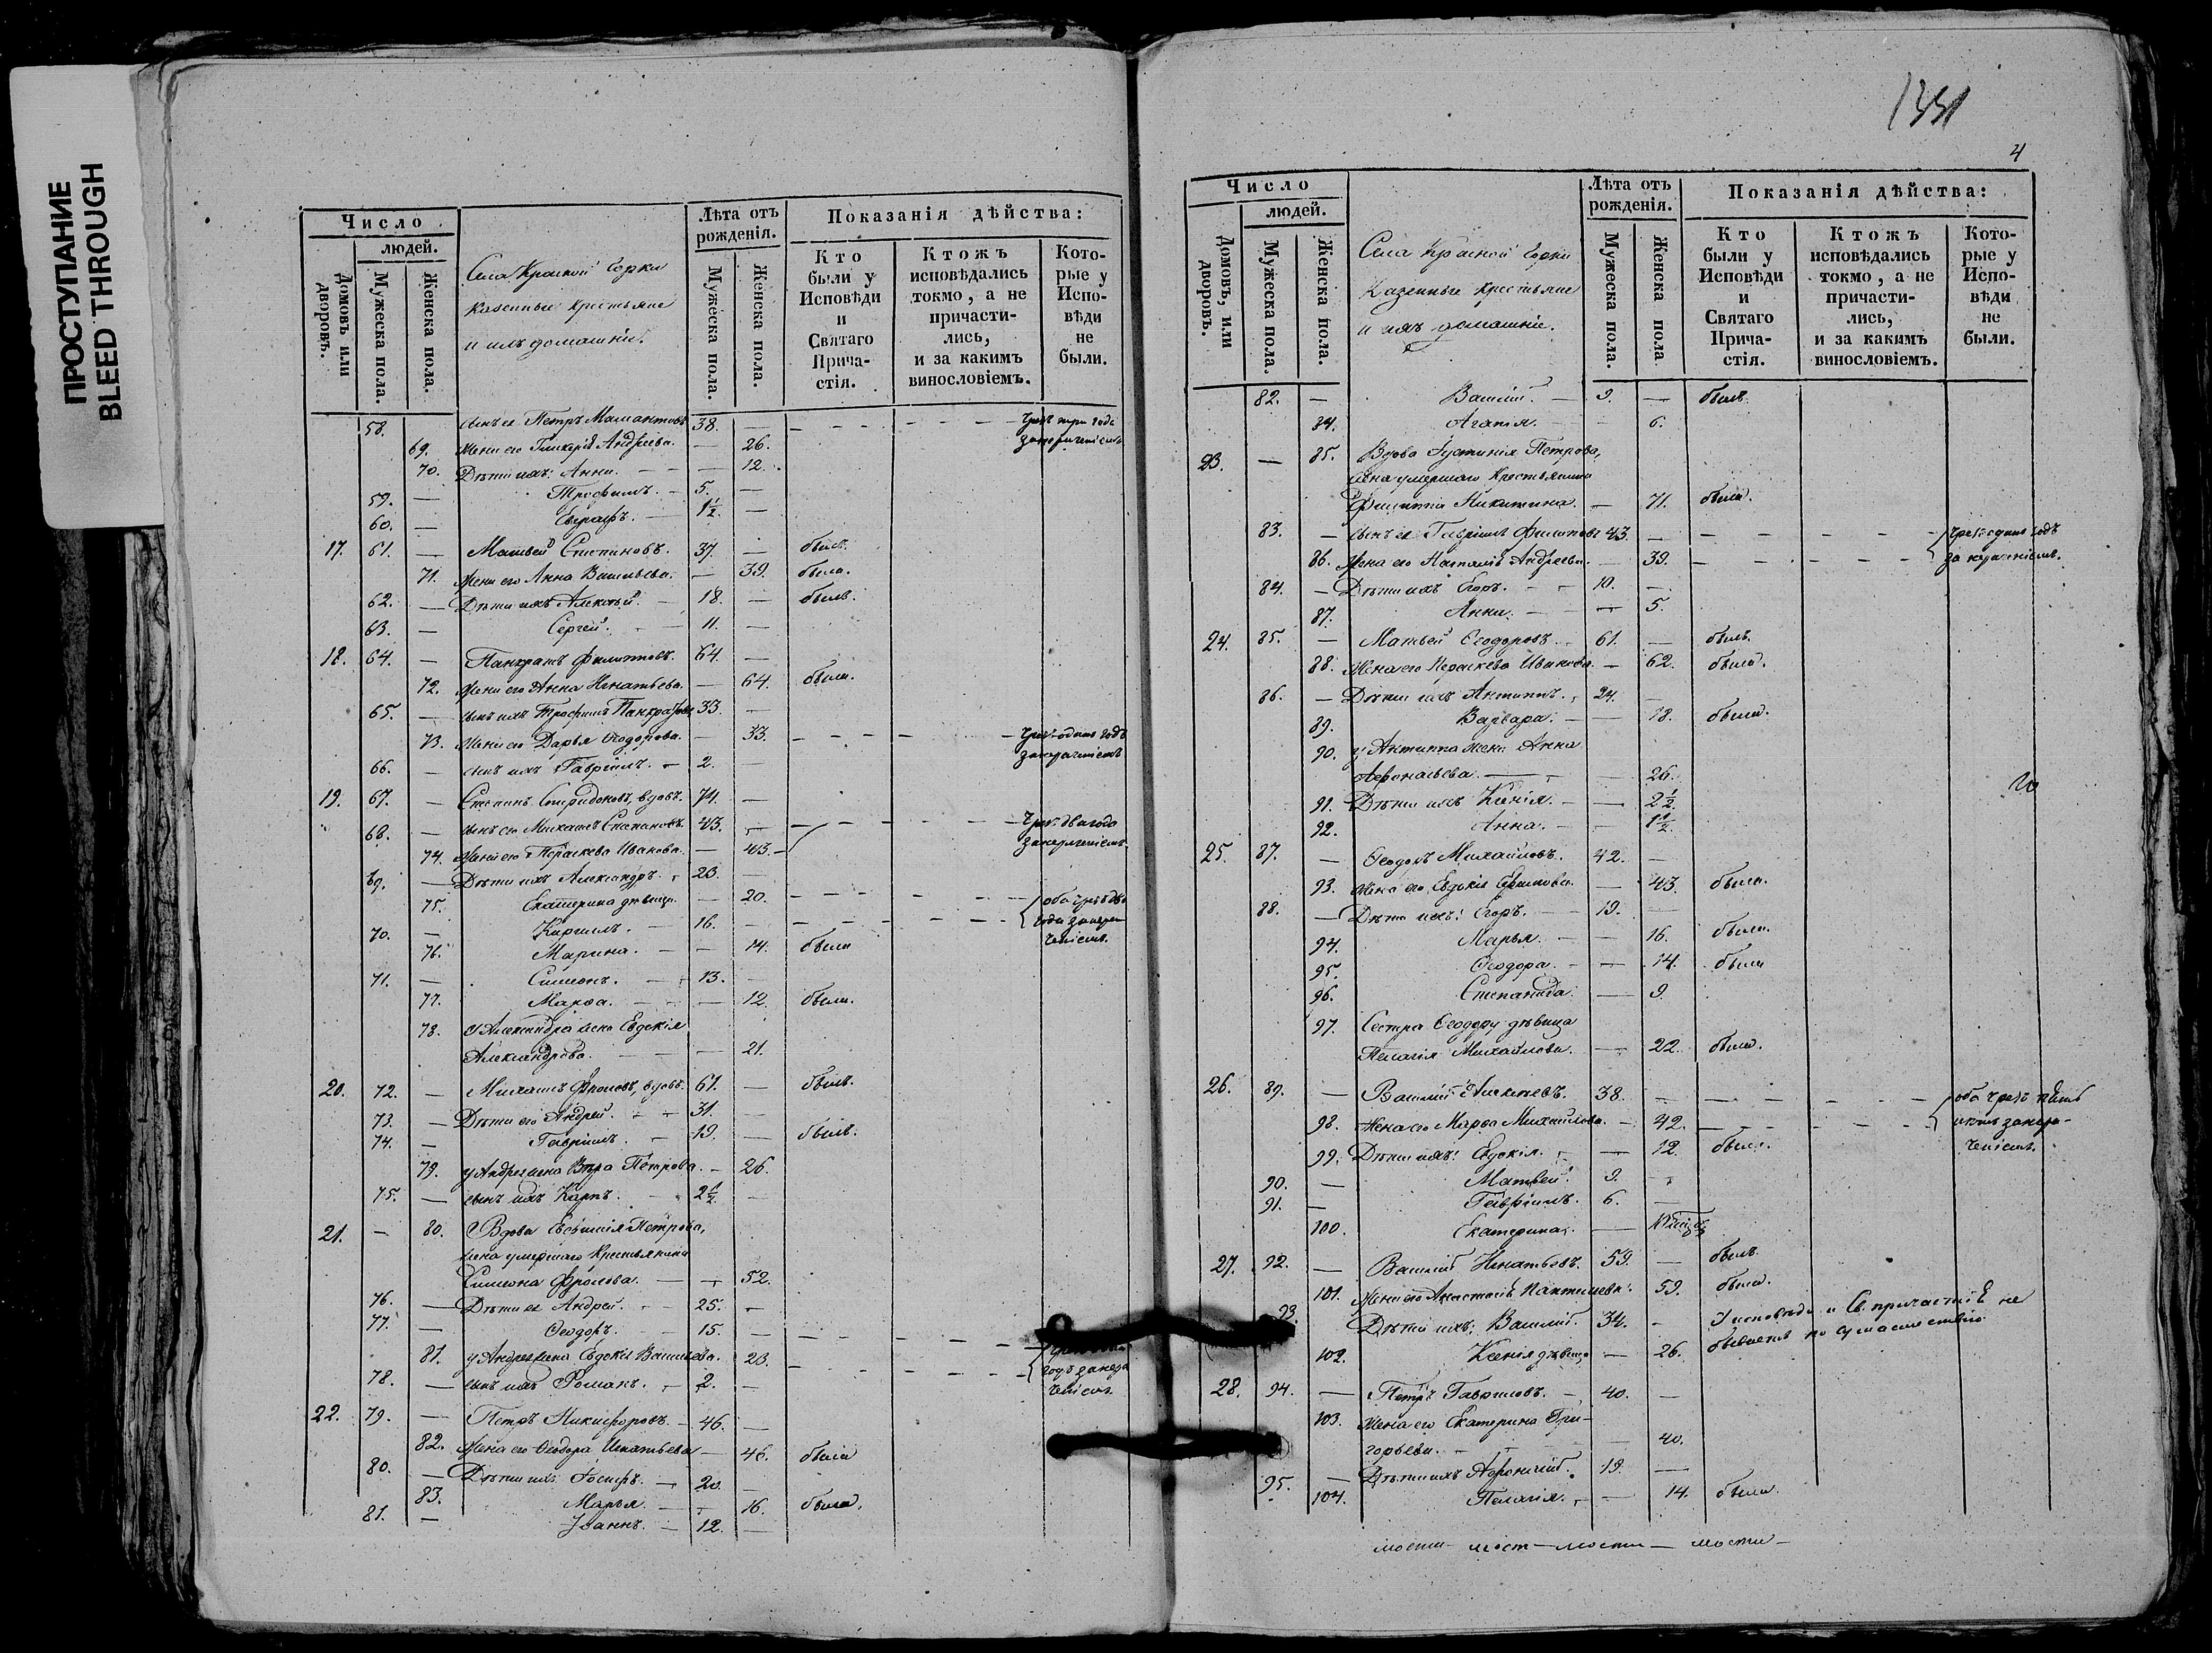 ПРОСТУПАНИЕ
BLEED THROUGH
Число
людей.
Домовъ или дворовъ.
Мужеска пола.
Женска пола.
Села Красной Горки
казенные крестьяне
и ихъ домашніе.
Лѣта отъ рожденія.
Мужеска пола.
Женска пола.
Показанія дѣйства:
Кто были у Исповѣди и Святаго Прича-стія.
Ктожъ исповѣдались токмо, а не причасти-лись, и за какимъ винословіемъ.
Кото-рые у Испо-вѣди не были.
58. сынъ ея Петръ Мамонтовъ 38. — чрезъ три года
69. жена его Гликерія Андреева. — 26.
70. Дѣти ихъ: Анна. — 12.
59. — Трофимъ. — 5. —
60. — Евграфъ. — 1½. —
17. 61. — Матвей Степановъ. 37. — былъ.
71. жена его Анна Васильева. — 39. была.
62. — Дѣти ихъ Алексѣй. — 18. — былъ.
63. — Сергей. — 11. —
18. 64. — Панкратъ Филиповъ. 64. —
72. жена его Анна Игнатьева. — 64. была.
65. — сынъ ихъ Трофимъ Панкратовъ 33. —
73. жена его Дарья Ѳеодорова. — 33. — чрезъ одинъ годъ
66. — сынъ ихъ Гавріилъ. — 2. —
19. 67. — Степанъ Спиридоновъ, вдовъ. 74. —
68. — сынъ его Михаилъ Степановъ. 43. — чрезъ два года
74. жена его Параскева Иванова. — 43. —
69. — Дѣти ихъ Александръ. 23. —
75. Екатерина дѣвица. — 20. — оба чрезъ два
70. — Кирилъ. — 16. — года занера-
76. Марина. — 14. была чніемъ.
71. — Симеонъ. — 13. —
77. Марѳа. — 12. была.
78. у Александра жена Евдокія
Александрова. — 21.
20. 72. — Михаилъ Фроловъ, вдовъ. 61. — былъ.
73. — Дѣти его Андрей. — 31. —
74. — Гавріилъ. — 19. — былъ.
79. у Андрея жена Вѣра Петрова. — 26.
75. — сынъ ихъ Карпъ. 2½. —
21. — 80. Вдова Евѳимія Петрова,
жена умершаго крестьянина
Симеона Фролова. — 52.
76. — Дѣти ея Андрей. — 25. —
77. — Ѳеодоръ. 15. —
81. у Андрея жена Евдокія Васильева. 23.
78. — сынъ ихъ Романъ. — 2. —
22. 79. — Петръ Никифоровъ. — 46. —
82. жена его Ѳеодора Игнатьева — 46. была
80. — Дѣти ихъ Іосифъ. — 20. —
83. Марья. — 16. была.
81. — Іоаннъ. — 12. —
4
Число
людей.
Домовъ, или дворовъ.
Мужеска пола.
Женска пола.
Села Красной Горки
Казенные крестьяне
и ихъ домашніе.
Лѣта отъ рожденія.
Мужеска пола.
Женска пола
Показанія дѣйства:
Кто были у Исповѣди и Святаго Прича-стія.
Ктожъ исповѣдались токмо, а не причасти-лись, и за какимъ винословіемъ.
Кото-рые у Испо-вѣди не были.
82. — Василій. — 9. — былъ
84. Агапія. — 6.
23. — 85. Вдова Іустинія Петрова,
жена умершаго крестьянина
Филиппа Никитина. — 71. была.
83. — сынъ ея Гавріилъ Филиповъ 43. — чрезъ одинъ годъ
86. жена его Наталія Андреева. — 39. —
84. — Дѣти ихъ Егоръ. — 10. —
87. Анна. — 5.
24. 85. — Матвей Ѳеодоровъ. 61. — былъ.
88. Жена его Параскева Иванова. — 62. была.
86. — Дѣти ихъ Антиппъ. 24. —
89. Варвара. — 18. была.
90. у Антиппа жена Анна
Аѳонасьева. — 26.
91. Дѣти ихъ Ксенія. — 2½
92. Анна. — 1½.
25. 87. — Ѳеодоръ Михайловъ. 42. —
93. жена его Евдокія Ефимова. — 43. была.
88. — Дѣти ихъ: Егоръ. — 19. —
94. Марья. — 16. была.
95. Ѳеодора. — 14. была
96. Степанида. — 9.
97. Сестра Ѳеодору дѣвица
Пелагія Михайлова. — 22. была.
26. 89. — Василій Алексѣевъ. 38. — оба чрезъ пять
98. Жена его Марѳа Михайлова. — 42. — лѣтъ занера-
99. Дѣти ихъ: Евдокія. — 12. была. ченіемъ.
90. — Матвей. 9. —
91. — Гавріилъ. 6. —
100. Екатерина. —
27. 92. — Василій Игнатьевъ. 59. — былъ
101. Жена его Анастасія 59. была.
93. Дѣти ихъ: Василій. 34. — У исповѣди и Св. причастія не
102. Ксенія дѣвица — 26. бываетъ по сумасшествію
28. 94. — Петръ Гавриловъ. — 40. —
103. Жена его Екатерина Гри-
горьева. — 40.
95. — Дѣти ихъ Аѳонасій. 19. —
104. Пелагія. — 14. была.